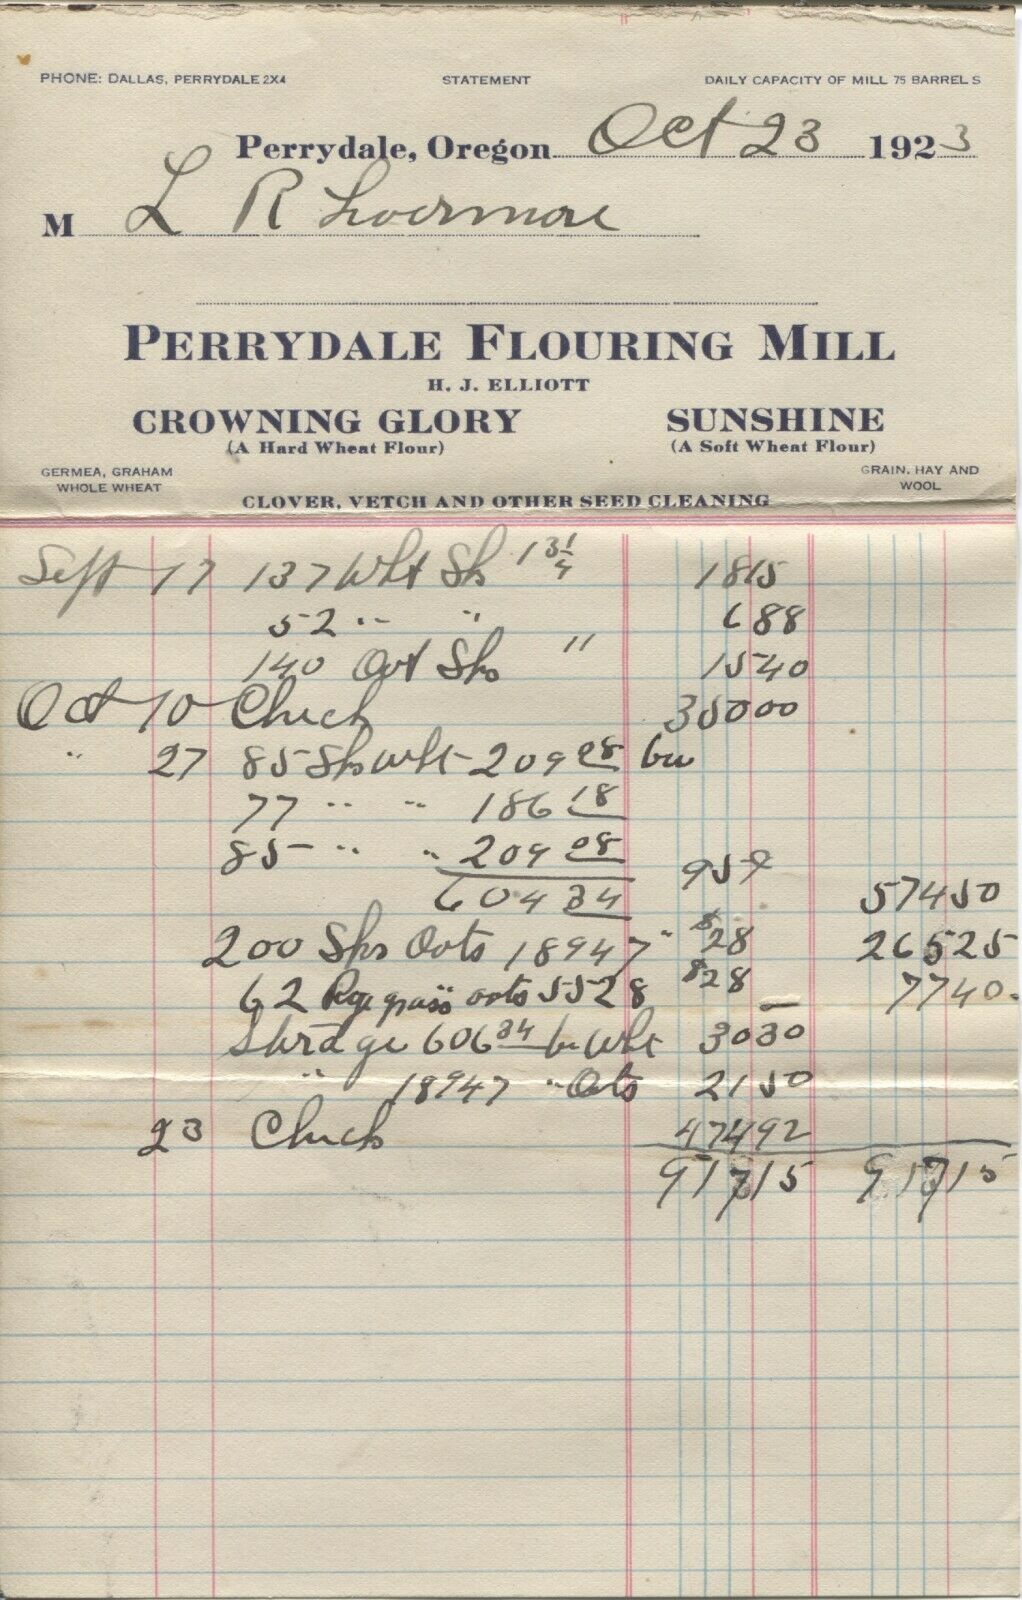 PHONE: DALLAS, PERRYDALE 2X4 STATEMENT DAILY CAPACITY OF MILL 75 BARRELS
Perrydale, Oregon Oct 23 1923
M L R Livermore
PERRYDALE FLOURING MILL
H. J. ELLIOTT
CROWNING GLORY SUNSHINE
(A Hard Wheat Flour) (A Soft Wheat Flour)
GERMEA, GRAHAM GRAIN. HAY AND
WHOLE WHEAT WOOL
CLOVER, VETCH AND OTHER SEED CLEANING
Sept 17 137 Wht Sks 13 1/4 1815
52 " " 688
140 Oat Sks " 1540
Oct 10 Check 35000
" 27 85 Sks Wht 209 08 bu
77 " " 186 18
85 " " 209 08
604 34 95 57450
200 Sks Oats 18947 " $28 26525
62 Rye grass oats 5528 $28 7740
Storage 606 34 bu Wht 3030
" 18947 " Oats 2150
23 Check 47492
91715 91715